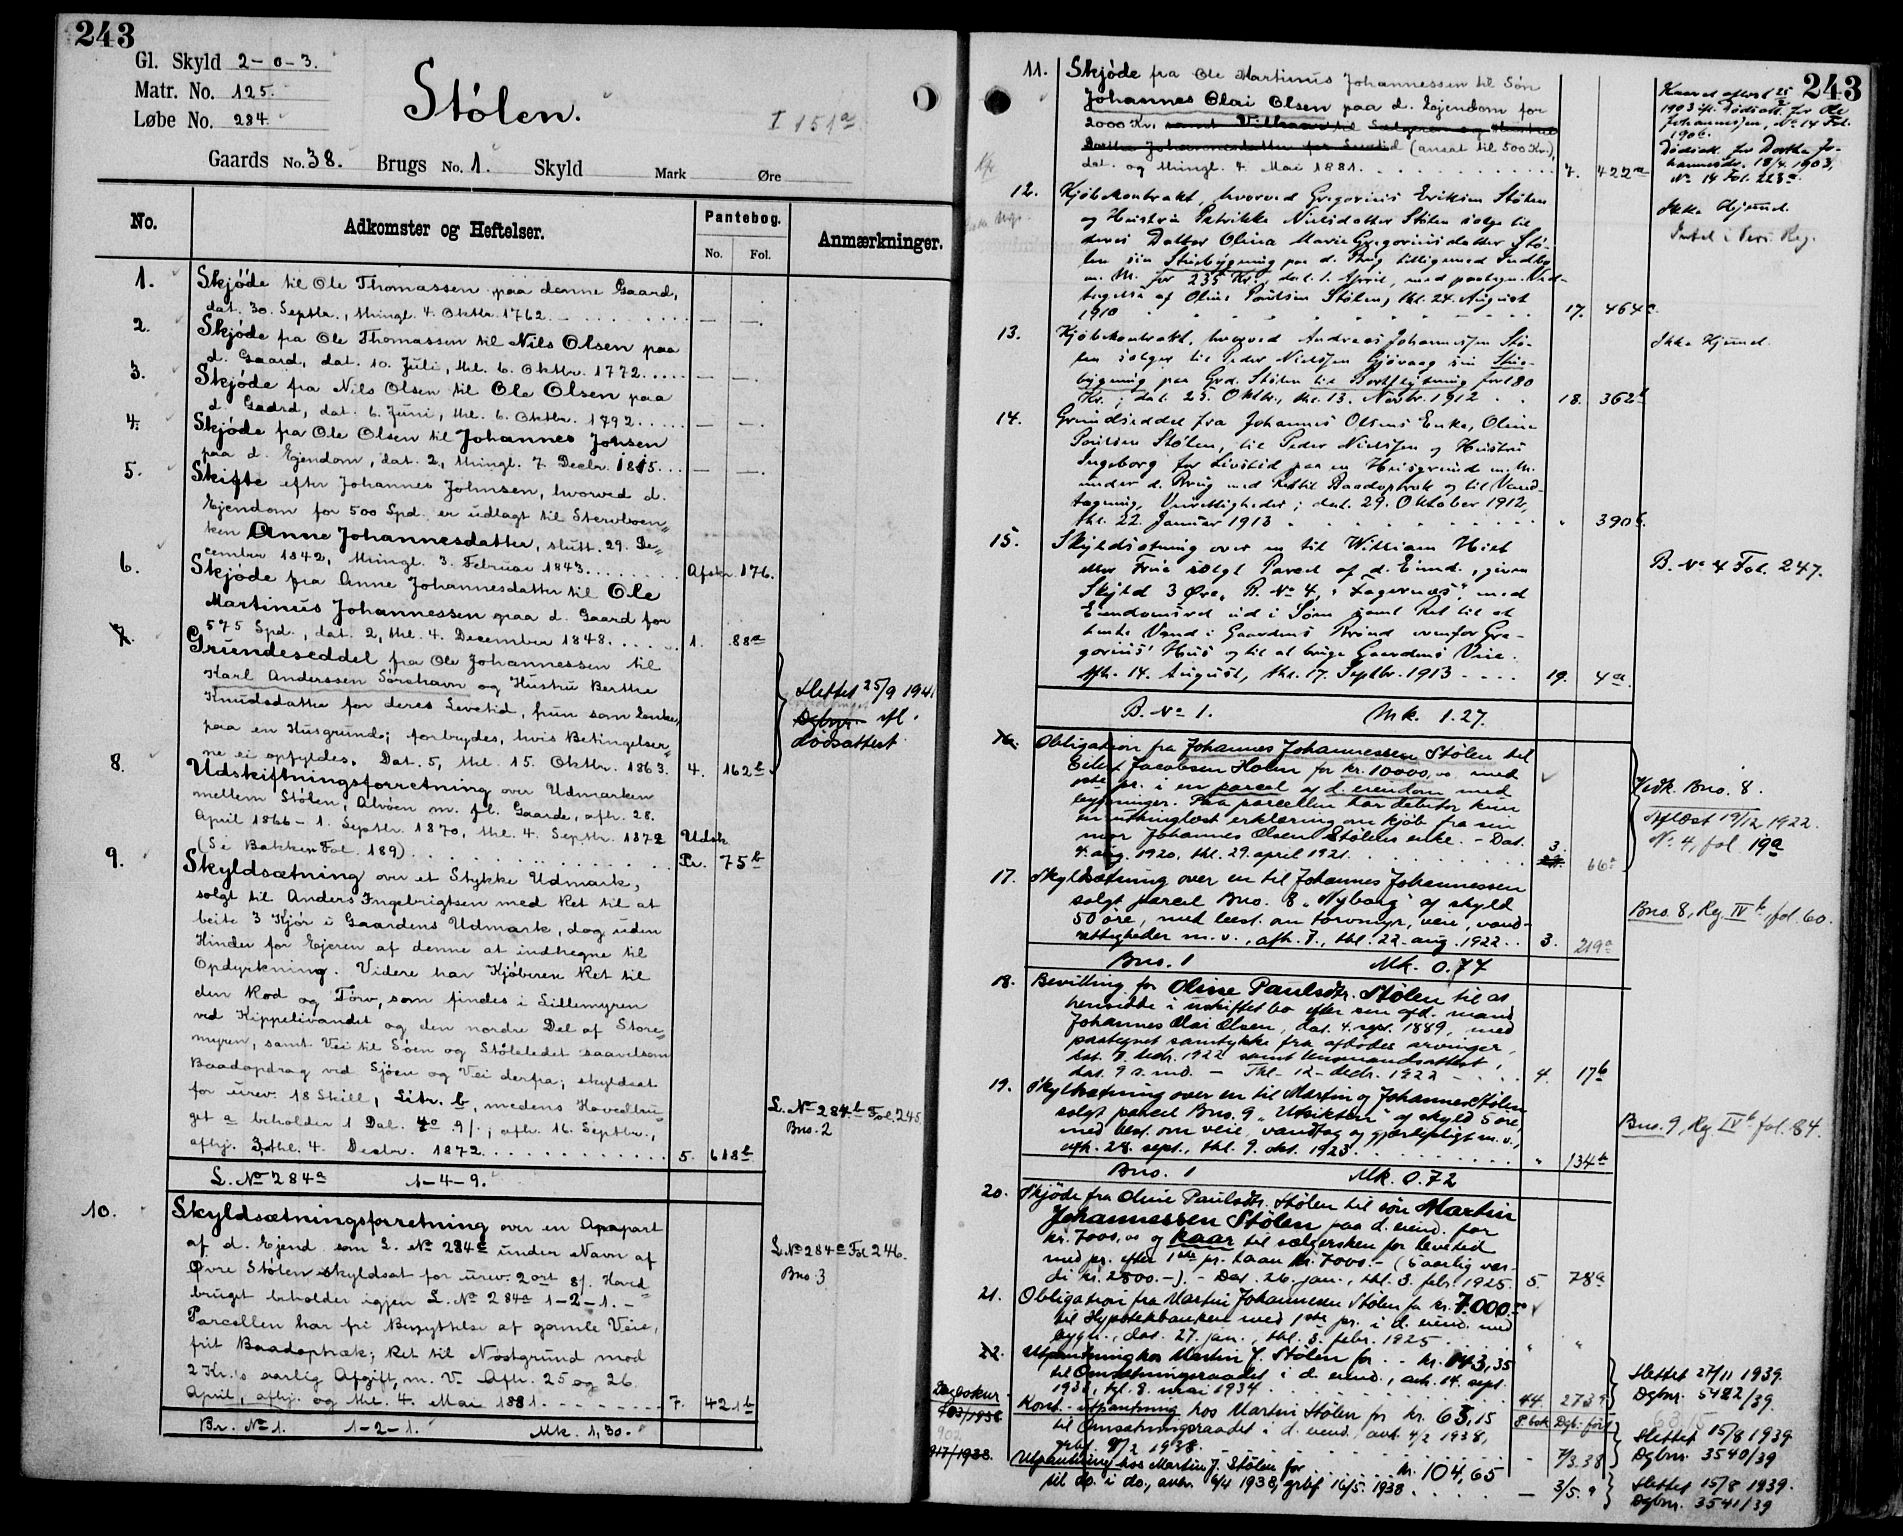 243
Gl. Skyld 2-0-3.
Matr. No. 125.
Løbe No. 284.
Stølen.
I 151a
Gaards No. 38. Brugs No. 1. Skyld Mark Øre
No. Adkomster og Heftelser. Pantebog. Anmærkninger.
No. Fol.
1. Skjøde til Ole Thomassen paa denne Gaard,
dat. 30. Septbr., thingl. 4. Oktbr. 1762. — —.
2. Skjøde fra Ole Thomassen til Nils Olsen paa
d. Gaard, dat. 10. Juli, thl. 6. Oktbr. 1772. — —.
3. Skjøde fra Nils Olsen til Ole Olsen paa
d. Gaard, dat. 6. Juni, thl. 6. Oktbr. 1792. — —.
4. Skjøde fra Ole Olsen til Johannes Johnsen
paa d. Ejendom, dat. 2, thingl. 7. Decbr. 1815. — —.
5. Skifte efter Johannes Johnsen, hvorved d.
Ejendom for 500 Spd. er udlagt til Stervboen-
ken Anne Johannesdatter, slutt. 29. De-
cember 1842, thingl. 3. Februar 1843. Afskr. 176.
6. Skjøde fra Anne Johannesdatter til Ole
Martinus Johannessen paa d. Gaard for
575 Spd., dat. 2, thl. 4. December 1848. 1. 88a
7. Grundeseddel fra Ole Johannessen til
Karl Anderssen Sørehavn og Hustru Berthe
Knudsdatter for deres Levetid, hun som Enke,
paa en Husgrund; forbrydes, hvis Betingelser-
ne ei opfyldes. Dat. 5, thl. 15. Oktbr. 1863. 4. 162b
Slettet 25/9 1941
Dgbnr. ifl.
dødsattest.
8. Udskiftningsforretning over Udmarken
mellem Stølen, Alvøen m. fl. Gaarde, afh. 28.
April 1866 - 1. Septbr. 1870, thl. 4. Septbr. 1872
(Se Bakken Fol. 189) Udsk. Pr. 75b
9. Skyldsætning over et Stykke Udmark,
solgt til Anders Ingebrigtsen med Ret til at
beite 3 Kjør i Gaardens Udmark, dog uden
Hinder for Ejeren af denne at indhegne til
Opdyrkning. Videre har Kjøberen Ret til
den Rod og Torv, som findes i Lillemyren
ved Kippelivandet og den nordre Del af Store-
myren, samt Vei til Søen og Støleledet saavelsom
Baadopdrag ved Sjøen og Vei derfra; skyldsat
for urev. 18 Skill, Litr. b, medens Hovedbru-
get a beholder 1 Dal. 4 o 9 /.; afh. 16. Septbr.,
afhj. 3, thl. 4. Decbr. 1872 5. 618b
L. No 284b Fol. 245.
Bno. 2
L. No 284a 1-4-9.
10. Skyldsætningsforretning over en Apapart
af d. Ejend. som L. No 284c under Navn af
Øvre Stølen skyldsat for urev. 2 ort 8/. Hoved-
bruget beholder igjen L. No 284a 1-2-1. -
Parcellen har fri Benyttelse af gamle Veie,
frit Baadoptræk; Ret til Nøstgrund mod
2 Kr.s aarlig Afgift, m. V. Afh. 25 og 26
April, afhj. og thl. 4. Mai 1881. 7. 421b
L No 284c Fol 246.
Bno 3
Br. No 1. 1-2-1. Mk. 1,30.
243
11. Skjøde fra Ole Martinus Johannessen til Søn
Johannes Olai Olsen paa d. Ejendom for
2000 Kr. samt Vilkaar til Sælgeren og Hustru
Dorthe Johannesdatter for Levetid (ansat til 500 Kr.),
dat. og thingl. 4. Mai 1881. 7. 422a
Kaaret afløst 25/
1903 ifl. Dødsatt. for Ole
Johannessen, No 14 Fol.
190b.
Dødsatt. for Dorthe Jo-
hannesdr. 18/4 1903,
No 14 Fol. 223a.
12. Kjøbekontrakt, hvorved Gregorius Eriksen Stølen
og Hustru Petrikke Nielsdatter Stølen sælge til
deres Datter Olina Marie Gregoriusdatter Stø-
len sin Stuebygning paa d. Brug tilligemed Indbo
m. M. for 235 Kr., dat. 1. April, med paategn. Ved-
tagelse af Oline Paulsen Stølen, thl. 24. August
1910 17. 464a
Ikke Hjemmel.
Indt. i Pers. Reg.
13. Kjøbekontrakt, hvorved Andreas Johannessen Stø-
len sælger til Peder Nielssen Gjøvaag sin Stue-
bygning paa Grd. Stølen til Bortflytning for 180
Kr.; dat. 25. Oktbr., thl. 13. Novbr. 1912 18. 362b
Ikke Hjemmel.
14. Grundseddel fra Johannes Olsens Enke, Oline
Paulsen Stølen, til Peder Nielssen og Hustru
Ingeborg for Livstid paa en Husgrund m. M.
under d. Brug med Ret til Baadoptræk og til Vand-
tagning, Veirettigheder; dat. 29. Oktober 1912,
thl. 22. Januar 1913 " 390b.
15. Skyldsætning over en til William Hist
eller Frue solgt Parcel af d. Eiend., given
Skyld 3 Øre, B. No 4, "Fagernæs", med
Eiendomsret ud i Søen samt Ret til at
hente Vand i Gaardens Brønd ovenfor Gre-
gorius' Hus og til at bruge Gaardens Veie.
Afh. 14. August, thl. 17. Septbr. 1913 19. 4a.
B. No 4 Fol. 247.
B. No 1. Mk. 1.27.
16. Obligation fra Johannes Johannessen Stølen til
Eilert Jacobsen Holm for kr. 10000,00 med
1ste pr. i en parcel af d. eiendom med
bygninger. Paa parcellen har debitor kun
en uthinglest erklæring om kjøb fra sin
mor Johannes Olsen Stølens enke. - Dat.
4. aug. 1920, thl. 29. april 1921. 3. 66a
Vedk. Bno. 8.
Aflæst 19/12 1922.
No 4, fol. 19a
17. Skyldsætning over en til Johannes Johannessen
solgt parcel Bno. 8 "Nyborg" af skyld
50 øre, med best. om torvmyr, veie, vand-
rettigheder m. v., afh. 7., thl. 22. aug. 1922. 3. 219a
Bno. 8, Reg. IVb, fol. 60.
Bno. 1 Mk. 0.77
18. Bevilling for Oline Paulsdtr. Stølen til at
hensidde i uskiftet bo efter sin afd. mand
Johannes Olai Olsen, dat. 4. sept. 1889, med
paategnet samtykke fra afdødes arvinger,
dat. 7. decbr. 1922 samt lensmandsattest,
dat. 9 a. md. - Thl. 12. decbr. 1922 4. 17b
19. Skyldsætning over en til Martin og Johannes Stølen
solgt parcel Bno. 9 "Utsikten" af skyld 5 øre,
med best. om veie, vandtag og gjærdepligt m. v.,
afh. 28. sept., thl. 9. okt. 1923. " 134b
Bno. 9, Reg. IVb fol. 84.
Bno. 1 Mk. 0.72
20. Skjøde fra Oline Paulsdtr. Stølen til søn Martin
Johannessen Stølen paa d. eiend. for
kr. 7000,00 og kaar til sælgersken for levetid
med pr. efter 1ste pr. laan kr. 7000.- (5 aarlig ver-
di kr. 2800.-). - Dat. 26. jan., thl. 3. febr. 1925. 5. 78a
21. Obligation fra Martin Johannessen Stølen for kr. 7.000.00
til Hypotekbanken med 1ste pr. i d. eiend. med
bygn., dat. 27. jan., thl. 3. febr. 1925 " "
22. Utpantning hos Martin J. Stølen for kr. 143,35
til Omsetningsraadet i d. eiend., avh. 14. sept.
1933, tgl. 8. mai 1934 44. 273a
Slettet 27/11 1939.
Dgbnr. 5422/39.
Dagboknr. P.bok Dgb. ført
903/1938 Konst. utpantning hos Martin Stølen for kr. 63,15
til Omsetningsraadet i d. eiend., avh. 4/2 1938,
grbf. 7/2 1938. - 7/3.38
Slettet 15/8 1939
Dgbnr. 3540/39
1917/1938. Utpantning hos Martin J. Stølen for kr. 104,65
til do. i do., avh. 6/4 1938, grbf. 16/5. 1938. — 3/5. "
Slettet 15/8 1939.
Dgbnr. 3541/39